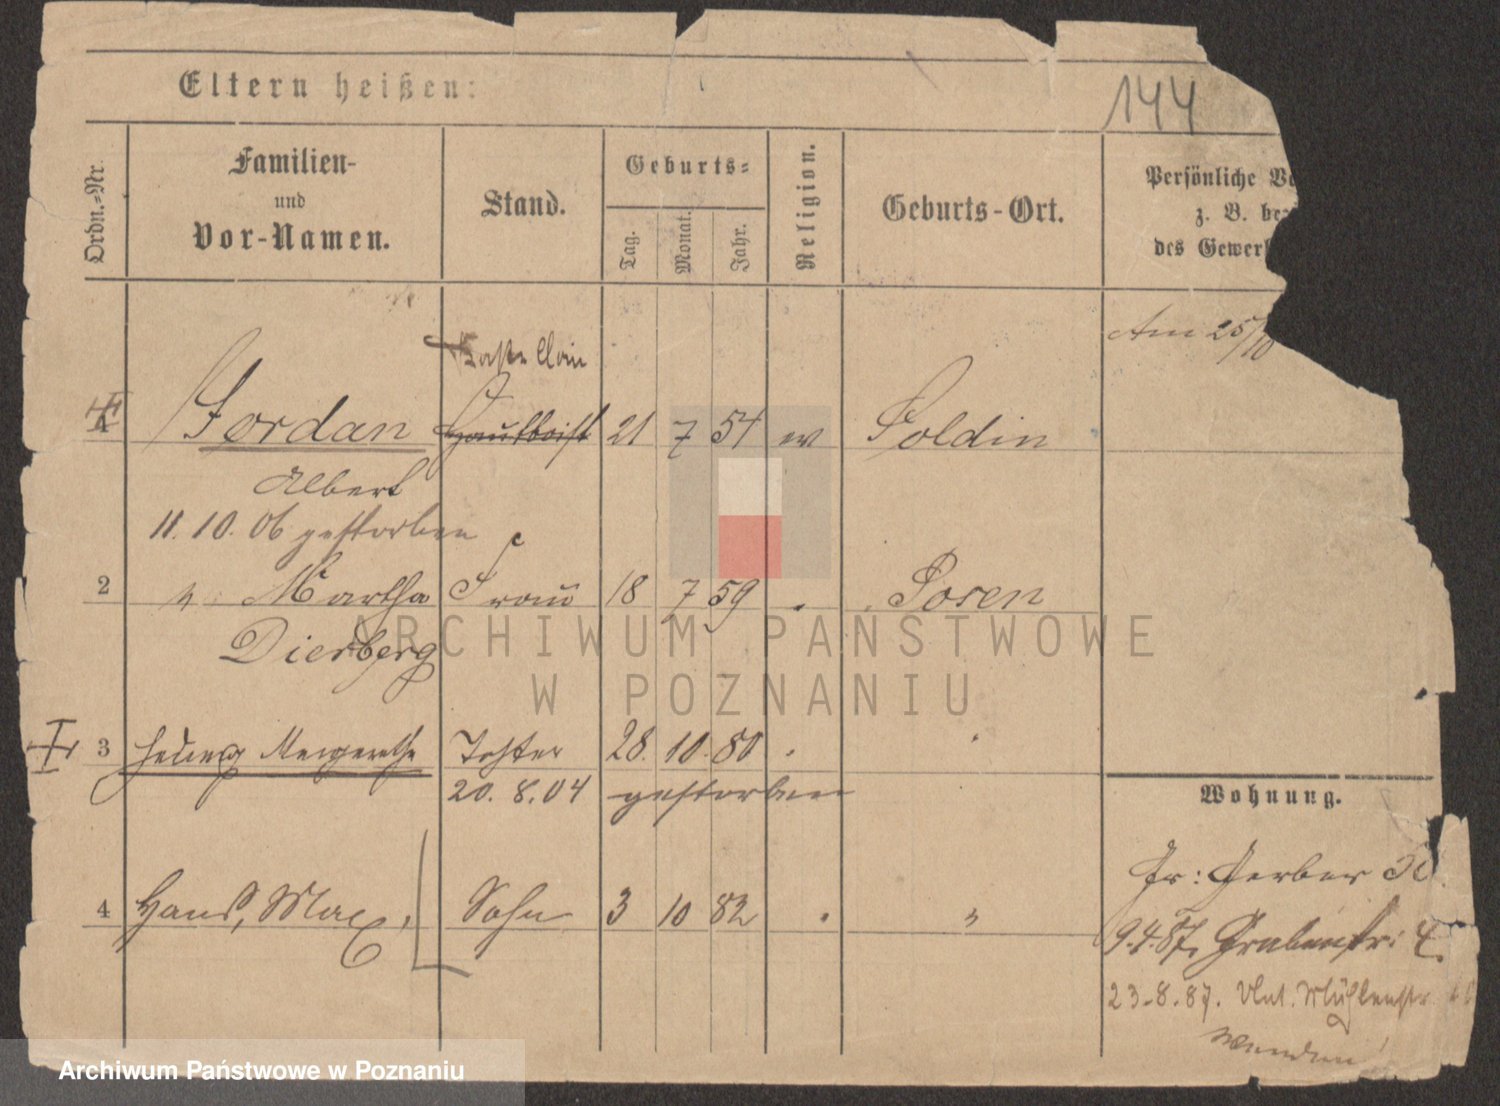 Eltern heißen:
144
Ordn.-Nr.
Familien-
und
Vor-Namen.
Stand.
Geburts-
Tag.
Monat.
Jahr.
Religion.
Geburts-Ort.
Persönliche
z. B.
des
Am 25/10
Kastellan
1 Jordan Hautboist 21 7 54 ev Soldin
Albert
11. 10. 06 gestorben
2 " Martha Frau 18 7 59 " Posen
Dierberg
3 Hedwig Margarethe Tochter 28. 10. 80 " "
20. 8. 04 gestorben
Wohnung.
4 Hans, Max, Sohn 3 10 82 " "
Gr: Gerber
9.4.87, Grabenstr: 4.
23.8.87. Unt. Mühlenstr.
Wenden!
ARCHIWUM PAŃSTWOWE
W POZNANIU
Archiwum Państwowe w Poznaniu